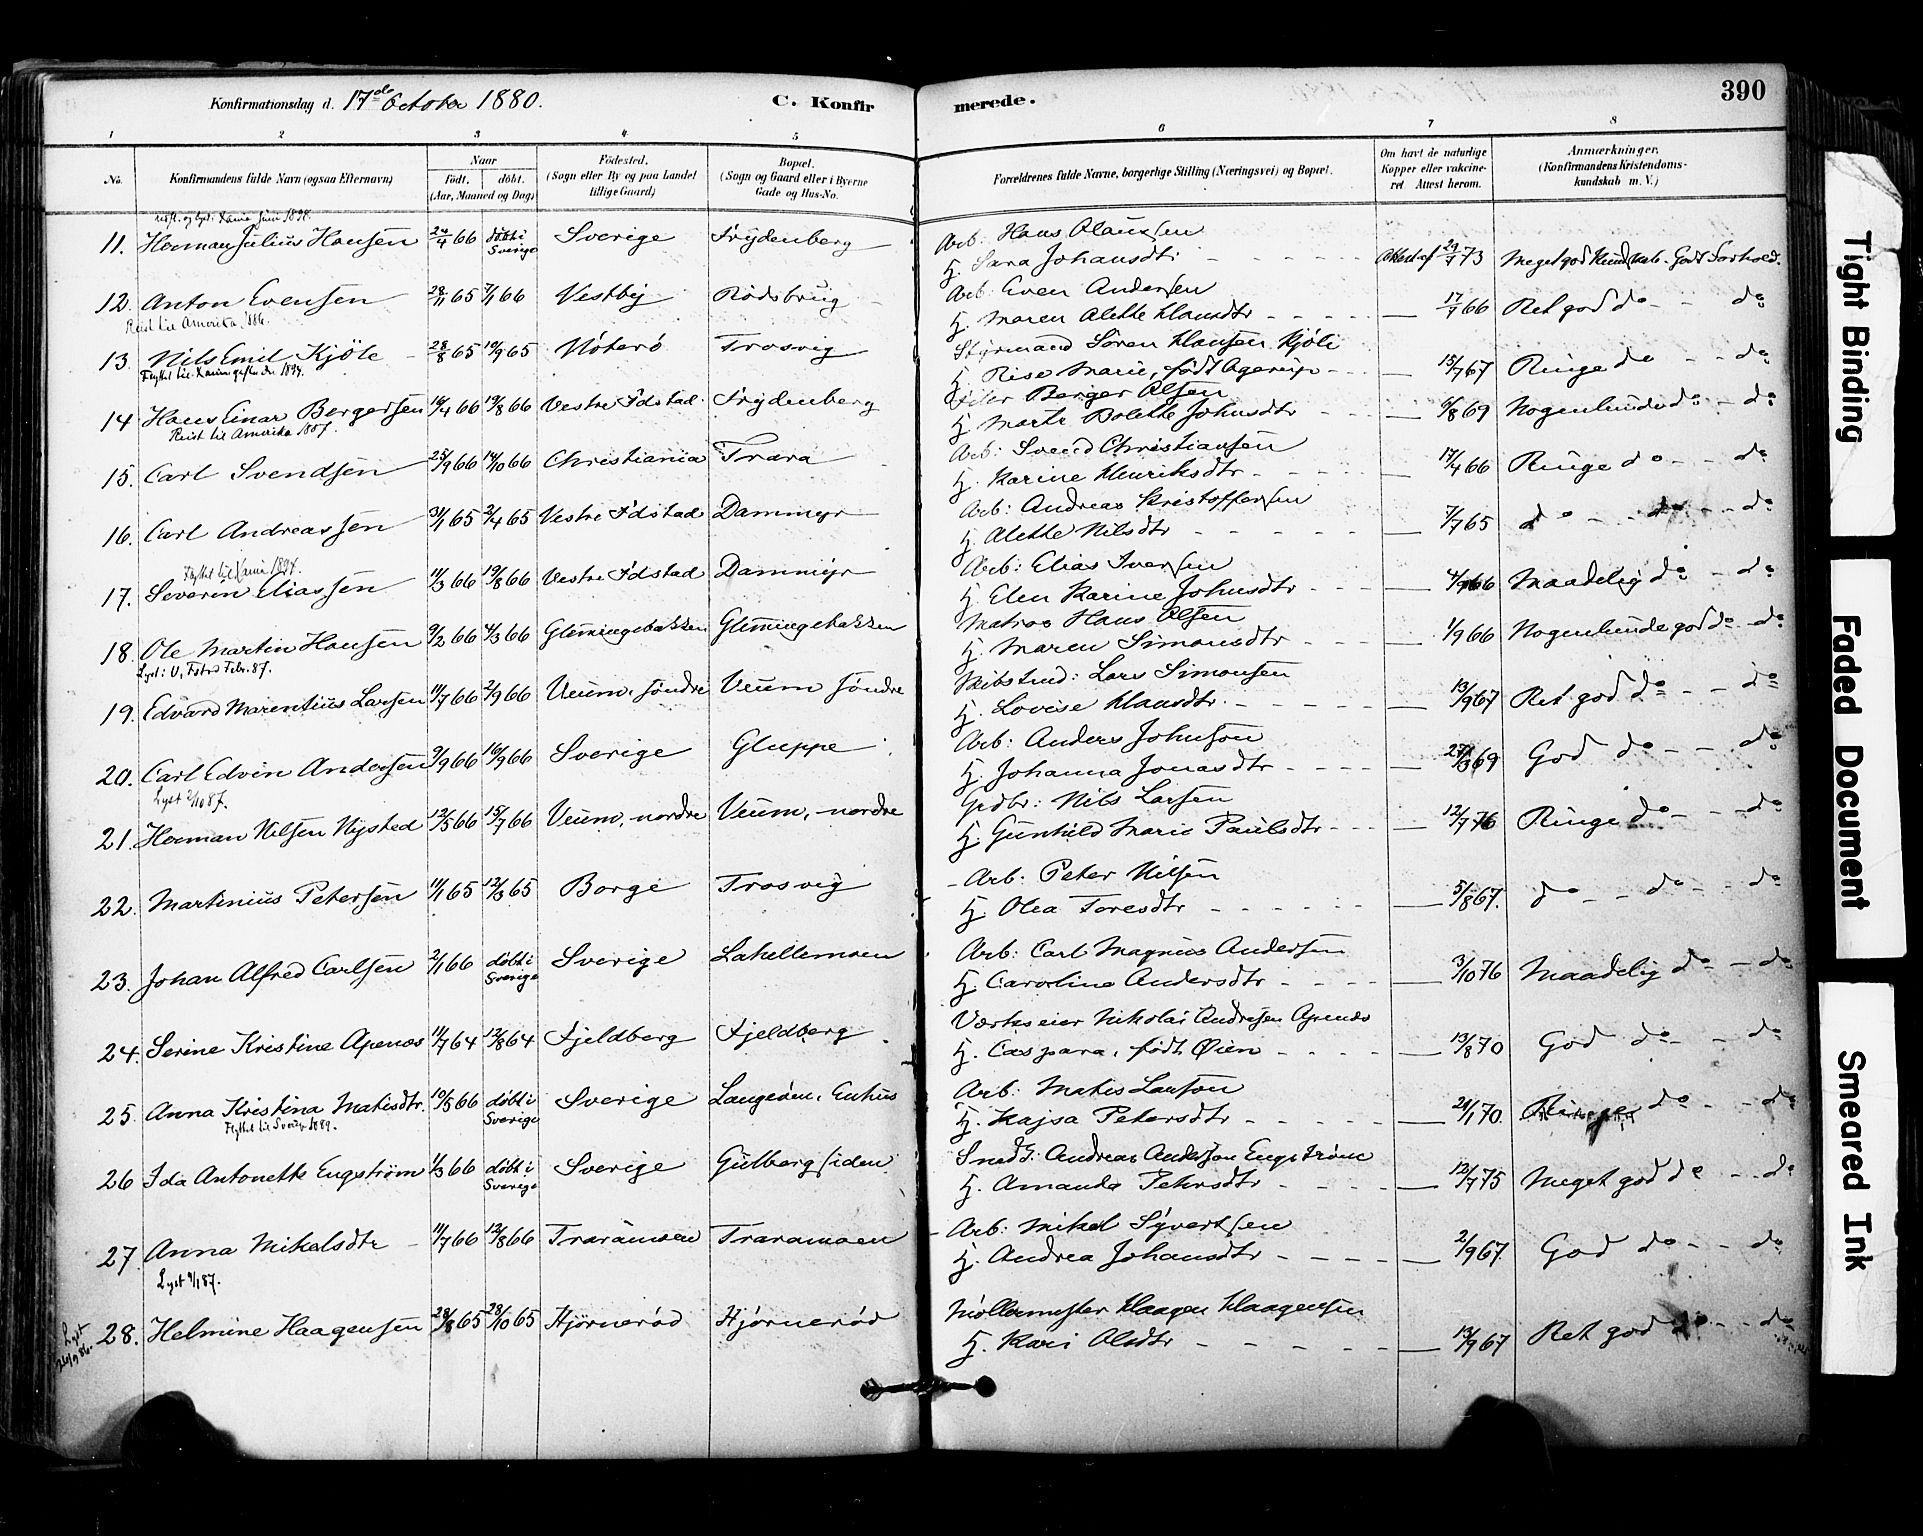 Konfirmationsdag d. 17de October 1880. C. Konfirmerede. 390
1 2 3 4 5 6 7 8
No. Konfirmandens fulde Navn (ogsaa Efternavn) Naar Født. døbt. (Aar, Maaned og Dag) Fødested. (Sogn eller By og paa Landet tillige Gaard) Bopæl. (Sogn og Gaard eller i Byerne Gade og Hus-No. Forældrenes fulde Navne, borgerlige Stilling (Næringsvei) og Bopæl. Om havt de naturlige Kopper eller vakcineret Attest herom. Anmærkninger. (Konfirmandens Kristendomskundskab m. V.)
11. Herman Julius Hansen 24/4 66 døbt i Sverige Sverige Frydenberg Arb: Hans Olaussen
H. Sara Johansdtr 29/7 73 Meget god Kundskab - Godt Forhold.
12. Anton Evensen 28/11 65 7/1 66 Vestby Rødsbrug Arb: Even Andersen
Reist til Amerika 1886.
H. Maren Alette Hansdtr 17/7 66 Ret god do - - do
13. Nils Emil Kjöle 28/8 65 10/9 65 Nøterö Trosvig Styrmand Sören Hansen Kjöli
H. Rise Marie, født Agerup 15/7 67 Ringe do - - do
14 Hans Einar Bergersen 16/4 66 19/8 66 Vestre Fdstad. Frydenberg Filer Berger Olsen
Reist til Amerika 1887.
H. Marte Bolette Johnsdtr 6/8 69 Nogenlunde do - do
15. Carl Svendsen 25/9 66 14/10 66 Christiania Trara Arb: Svend Christiansen
H. Karine Henriksdtr 17/4 66 Ringe do - - do
16. Carl Andreassen 31/1 65 2/4 65 Vestre Fdstad Dammyr Arb: Andreas Kristoffersen
H. Alette Nilsdtr 7/7 65 do - - do - - do
17. Severin Eliassen 11/3 66 19/8 66 Vestre Fdstad Dammyr Arb: Elias Iversen
H. Elen Karine Johnsdtr Maadelig do - do
18. Ole Martin Hansen 9/2 66 4/3 66 Glemingebakken Glemingebakken Matros Hans Olsen
H. Maren Simonsdtr 1/9 66 Nogenlunde god do - do
19. Edvard Marentius Larsen 11/7 66 2/9 66 Veum, söndre Veum söndre Lars Simonsen
H. Lovise Hansdtr. 13/9 67 Ret god do - - do
20. Carl Edvin Andersen 9/9 66 16/9 66 Sverige Gluppe Arb: Anders Johnson
Lyst 2/10 87.
H. Johanna Jonasdtr God do - - do
21. Herman Nilsen Nysted 12/5 66 15/7 66 Veum, nordre Veum, nordre Grdbr: Nils Larsen
H. Gunhild Marie Paulsdtr 12/7 76 Ringe do - - do
22. Martinius Petersen 11/1 65 12/3 65 Borge Trosvig Arb: Peter Nilsen
H. Olea Toresdtr 5/8 67. do - - do - - do
23. Johan Alfred Carlsen 2/1 66 døbt i Sverige Sverige Lahellemoen Arb: Carl Magnus Andersen
H. Caroline Andersdtr 3/10 76 Maadelig do - do
24. Serine Kristine Apenæs 11/7 64 12/8 64 Fjeldberg Fjeldberg Værkseier Nikolai Andresen Apenæs
H. Caspara, født Øien 13/8 70 God do - - do
25. Anna Kristina Matisdtr. 10/5 66 døbt i Sverige Sverige Langöen, Enhus Arb: Matis Larson
Flyttet til Sverige 1889.
H. Kajsa Petersdtr 21/1 70. Ringe do - - do
26 Ida Antonette Engström 1/3 66 døbt i Sverige Sverige Gulbergsiden Smed: Andreas Anderson Engström
H. Amanda Petersdtr 12/7 75 Meget god do - - do
27. Anna Mikelsdtr 11/7 66 12/8 66 Traramoen Traramoen Arb: Mikel Syvertsen
Lyst 9/1 87.
H. Andrea Johansdtr 2/9 67. God do - - do
28. Helmine Haagensen 28/8 65 28/10 65 Hjörneröd Hjörneröd Møllermester Haagen Haagensen
H. Kari Olsdtr 13/9 67 Ret god do - - do
Tight Binding
Faded Document
Smeared Ink